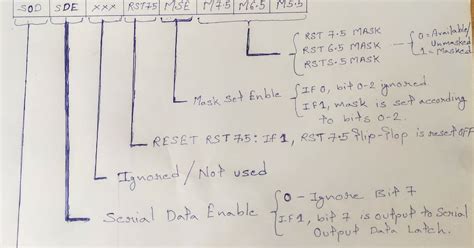 SOD SDE xxx RST75 MSE M7.5 M6.5 M5.5
RST 7.5 MASK
RST 6.5 MASK
RST5.5 MASK
0 = Available/
Unmasked
1 = Masked
Mask Set Enble
IF 0, bit 0-2 ignored
IF 1, mask is set according
to bits 0-2.
RESET RST75: IF 1, RST 7.5 flip-flop is reset OFF
Ignored / Not used
Serial Data Enable
0 - Ignore Bit 7
IF 1, bit 7 is output to Serial
Output Data Latch.